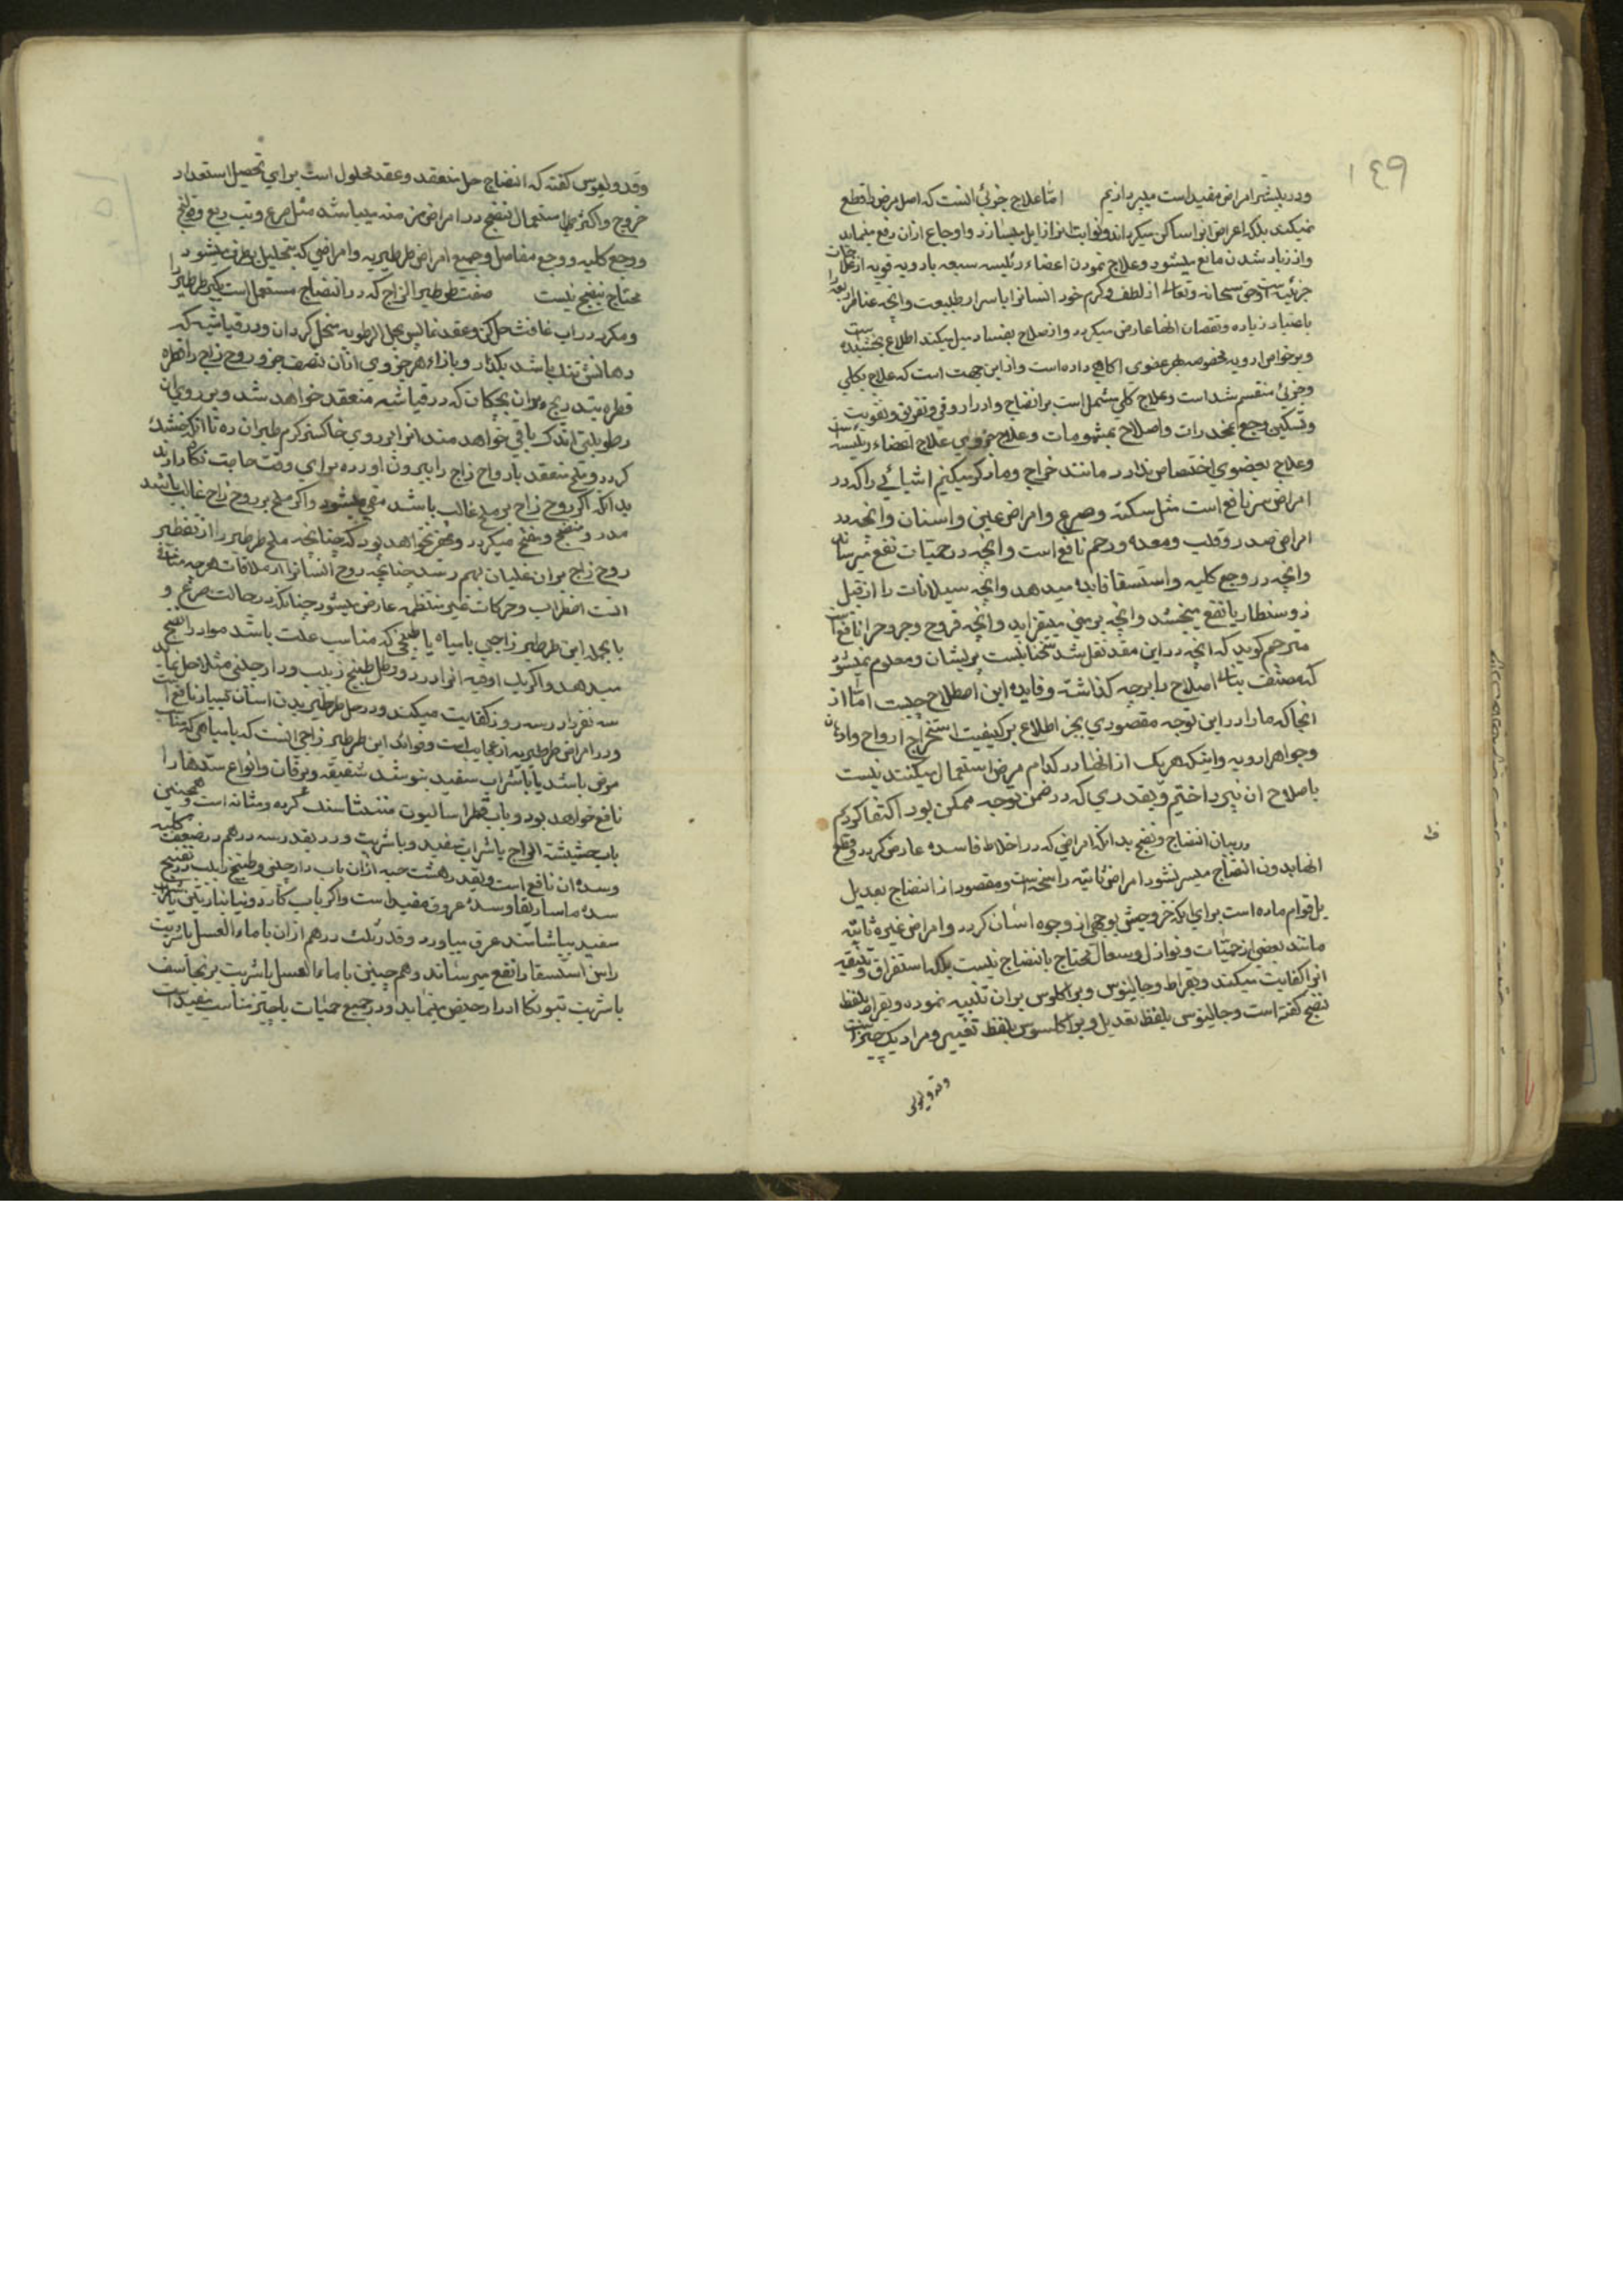 ١٤٩
ودر بیشتر امراض مفید است میپردازیم اما علاج جزئی انست که اصل مرض را قطع
نمیکند بلکه اعراض انرا ساکن میکرداند و نوایب انرا زایل میسازد و اوجاع ازان رفع مینماید
واز زیاد شدن مانع میشود وعلاج نمودن اعضاء رئیسه سبعه بادویه قویه از علاجات
جزئیه است وحق سبحانه وتعالی از لطف وکرم خود انسانرا باسرار طبیعت وانچه عناصر اربعه را
باعتبار زیاده ونقصان انها عارض میکردد واز صلاح بفساد میل میکند اطلاع بخشیده است
وبر خواص ادویه مخصوصه بهر عضوی اکاهی داده است واز این جهت است که علاج بکلی
وجزئی منقسم شد است وعلاج کلی مشتمل است بر انضاج وادرار وقی وتعریق وتقویت
وتسکین وجع بمخدرات واصلاح بمشمومات وعلاج جزوی علاج اعضاء رئیسه است
وعلاج بعضوی اختصاص ندارد مانند خراج وما ذکر میکنیم اشیائی را که در
امراض سر نافع است مثل سکته وصرع وامراض عین واسنان وانچه در
امراض صدر وقلب ومعده ورحم نافع است وانچه در حمیات نفع میرساند
وانچه در وجع کلیه واستسقا فایده میدهد وانچه سیلانات را از قبیل
ذوسنطاریا نفع میبخشد وانچه بر منی میفزاید وانچه قروح وجروح را نافع است
مترجم کوید که انچه در این مقد نقل شد سخنانیست پریشان ومعلوم نمیشود
که مصنف بناء اصلاح را بر چه کذاشته وفایده این اصطلاح چیست اما از
انجا که ما را در این توجه مقصودی بجز اطلاع بر کیفیت استخراج ارواح وادهان
وجواهر ادویه واینکه هریک از انها در کدام مرض استعمال میکنند نیست
باصلاح ان نپرداختیم وبقدری که در ضمن توجه ممکن بود اکتفا کردیم
در بیان انضاج ونضج بدانکه امراضی که در اخلاط فاسده عارض کردد وقلع
انها بدون انضاج میسر نشود امراض ثابته راسخه است ومقصود از انضاج تعدیل
بل قوام ماده است برای انکه خروجش بوجهی از وجوه اسان کردد وامراض غیر ثابته
مانند بعضی از حمیات ونوازل وسعال محتاج بانضاج نیست بلکه استفراق وتنقیه
انرا کفایت میکند وبقراط وجالینوس وبراکلوس بران تنبیه نموده وبقراط بلفظ
نضج کفته است وجالینوس بلفظ تعدیل وبراکلسوس بلفظ تغییر ومراد یک چیز است
وقدرولیوس کفته که انضاج حل منعقد وعقد محلول است برای تحصیل استعداد
خروج واکثر استعمال نضج در امراض مزمنه میباشد مثل صرع وتب ربع وقولنج
ووجع کلیه ووجع مفاصل وجمیع امراض طرطیریه وامراضی که بتحلیل برطرف میشود
محتاج بنضج نیست صفت طرطیر الزاج که در انضاج مستعمل است بکیر طرطیر را
ومکرر در اب غافث حل کن وعقد نمای پس بحل الرطوبه منحل کردان ودر قیاشیه که
دهانش تنک باشد بکذار وبازاء هر جزوی ازان نصف جزو روح زاج را قطره
قطره بتدریج بران بچکان که در قیاشیه منعقد خواهد شد وبر روی ان
رطوبتی اندک باقی خواهد ماند انرا بر روی خاکستر کرم طیران ده تا انکه خشک
کردد وملح منعقد بارواح زاج را بیرون اورده برای وقت حاجت نکاه دارند
بدانکه اکر روح زاج بر ملح غالب باشد مقی میشود واکر ملح بر روح زاج غالب باشد
مدر ومنضج ومفتح میکردد ومقئ نخواهد بود که چنانچه ملح طرطیر را از تقطیر
روح زاج بران غلیان بهم رسد چنانچه روح انسانرا از ملاقات هرچه مخالف
انست اضطراب وحرکات غیر منتظمه عارض میشود چنانکه در حالت صرع و
بالجمله این طرطیر زاجی با میاه یا طبیخی که مناسب علت باشد مواد را نضج
میدهد واکر یک اوقیه انرا در دو رطل طبیخ زبیب ودارچینی مثلا حل نمایند
سه نفر را در سه روز کفایت میکند ودر حل طرطیر بدن انسان بسیار نافع است
ودر امراض طرطیریه از عجایب است وفواید این طرطیر زاجی انست که با میاهی که مناسب
مرض باشد یا با شراب سفید بنوشند شقیقه ویرقان وانواع سدها را
نافع خواهد بود وباب فطراسالیون سنک کرده ومثانه است وهمچنین
باب حشیشة الزجاج باشراب سفید وباشربت ورد بقدر سه درهم در ضعف کلیه
وسده ان نافع است وبقدر هشت حبه ازان باب دارچینی وطبیخ زبیب در تفتیح
سده ماساریقا وسده عروق مفید است واکر باب کاردونیا یا بشراب
سفید بیاشامند عرق بیاورد وقدر ثلث درهم ازان با ماء العسل یا شربت
راسن استسقا را نفع میرساند وهمچنین با ماء العسل یا شربت برنجاسف
باشربت تبونکا ادرار حیض مینماید ودر جمیع حمیات باچیز مناسب مفید است